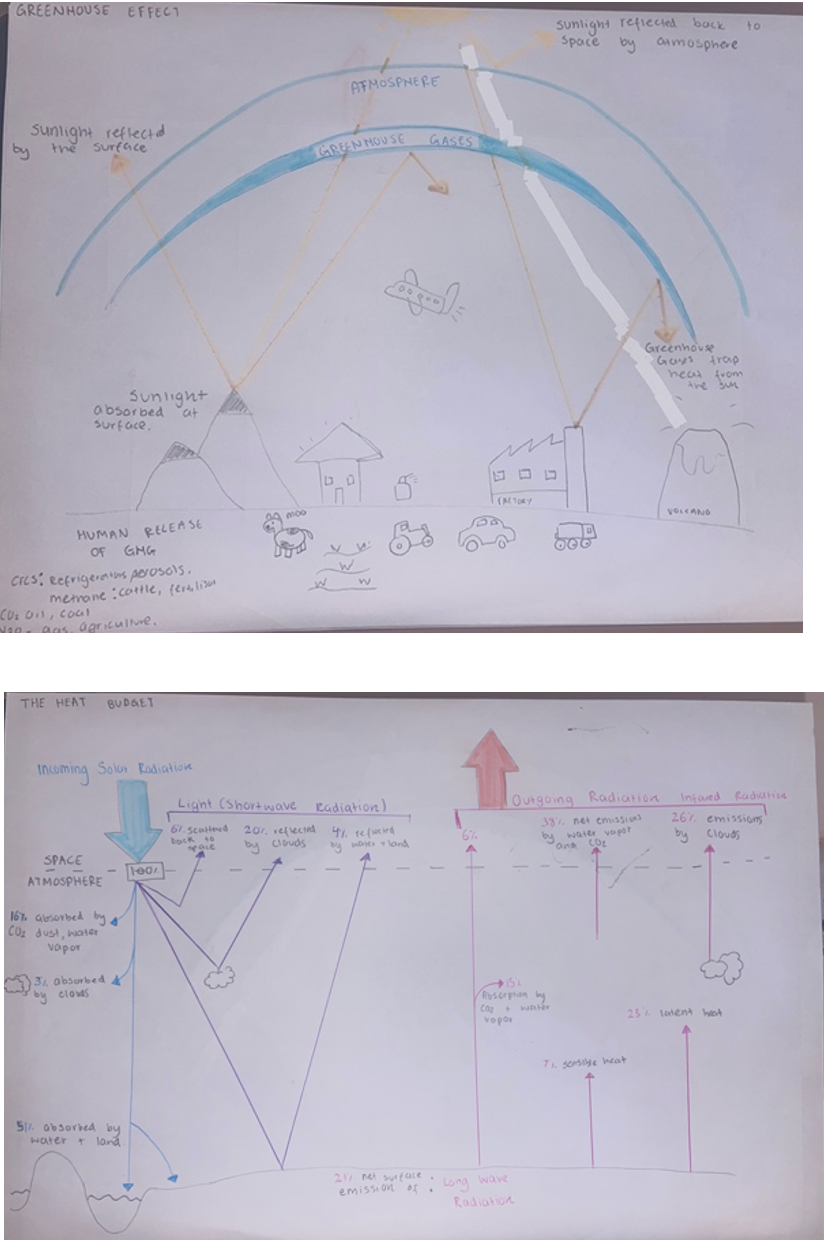 GREENHOUSE EFFECT
sunlight reflected back to
space by atmosphere
ATMOSPHERE
sunlight reflected
by the surface
GREENHOUSE GASES
Greenhouse
Gases trap
heat from
the sun
sunlight
absorbed at
surface.
FACTORY
VOLCANO
MOO
HUMAN RELEASE
OF GHG
W W
W
W W
CFCS: Refrigerations, Aerosols.
methane: cattle, fertiliser
CO₂ oil, coal
gas, agriculture.
THE HEAT BUDGET
Incoming Solar Radiation
Light (Shortwave Radiation)
Outgoing Radiation Infared Radiation
6% scattered
back to
space
20% reflected
by clouds
4% reflected
by water + land
6%
38% net emissions
by water vapor
and CO₂
26% emissions
by clouds
SPACE
ATMOSPHERE
100%
16% absorbed by
CO₂ dust, water
vapor
3% absorbed
by clouds
15%
Absorption by
CO₂ + water
vapor
23% latent heat
7% sensible heat
51% absorbed by
water + land
21% net surface
emission of : Long Wave
Radiation